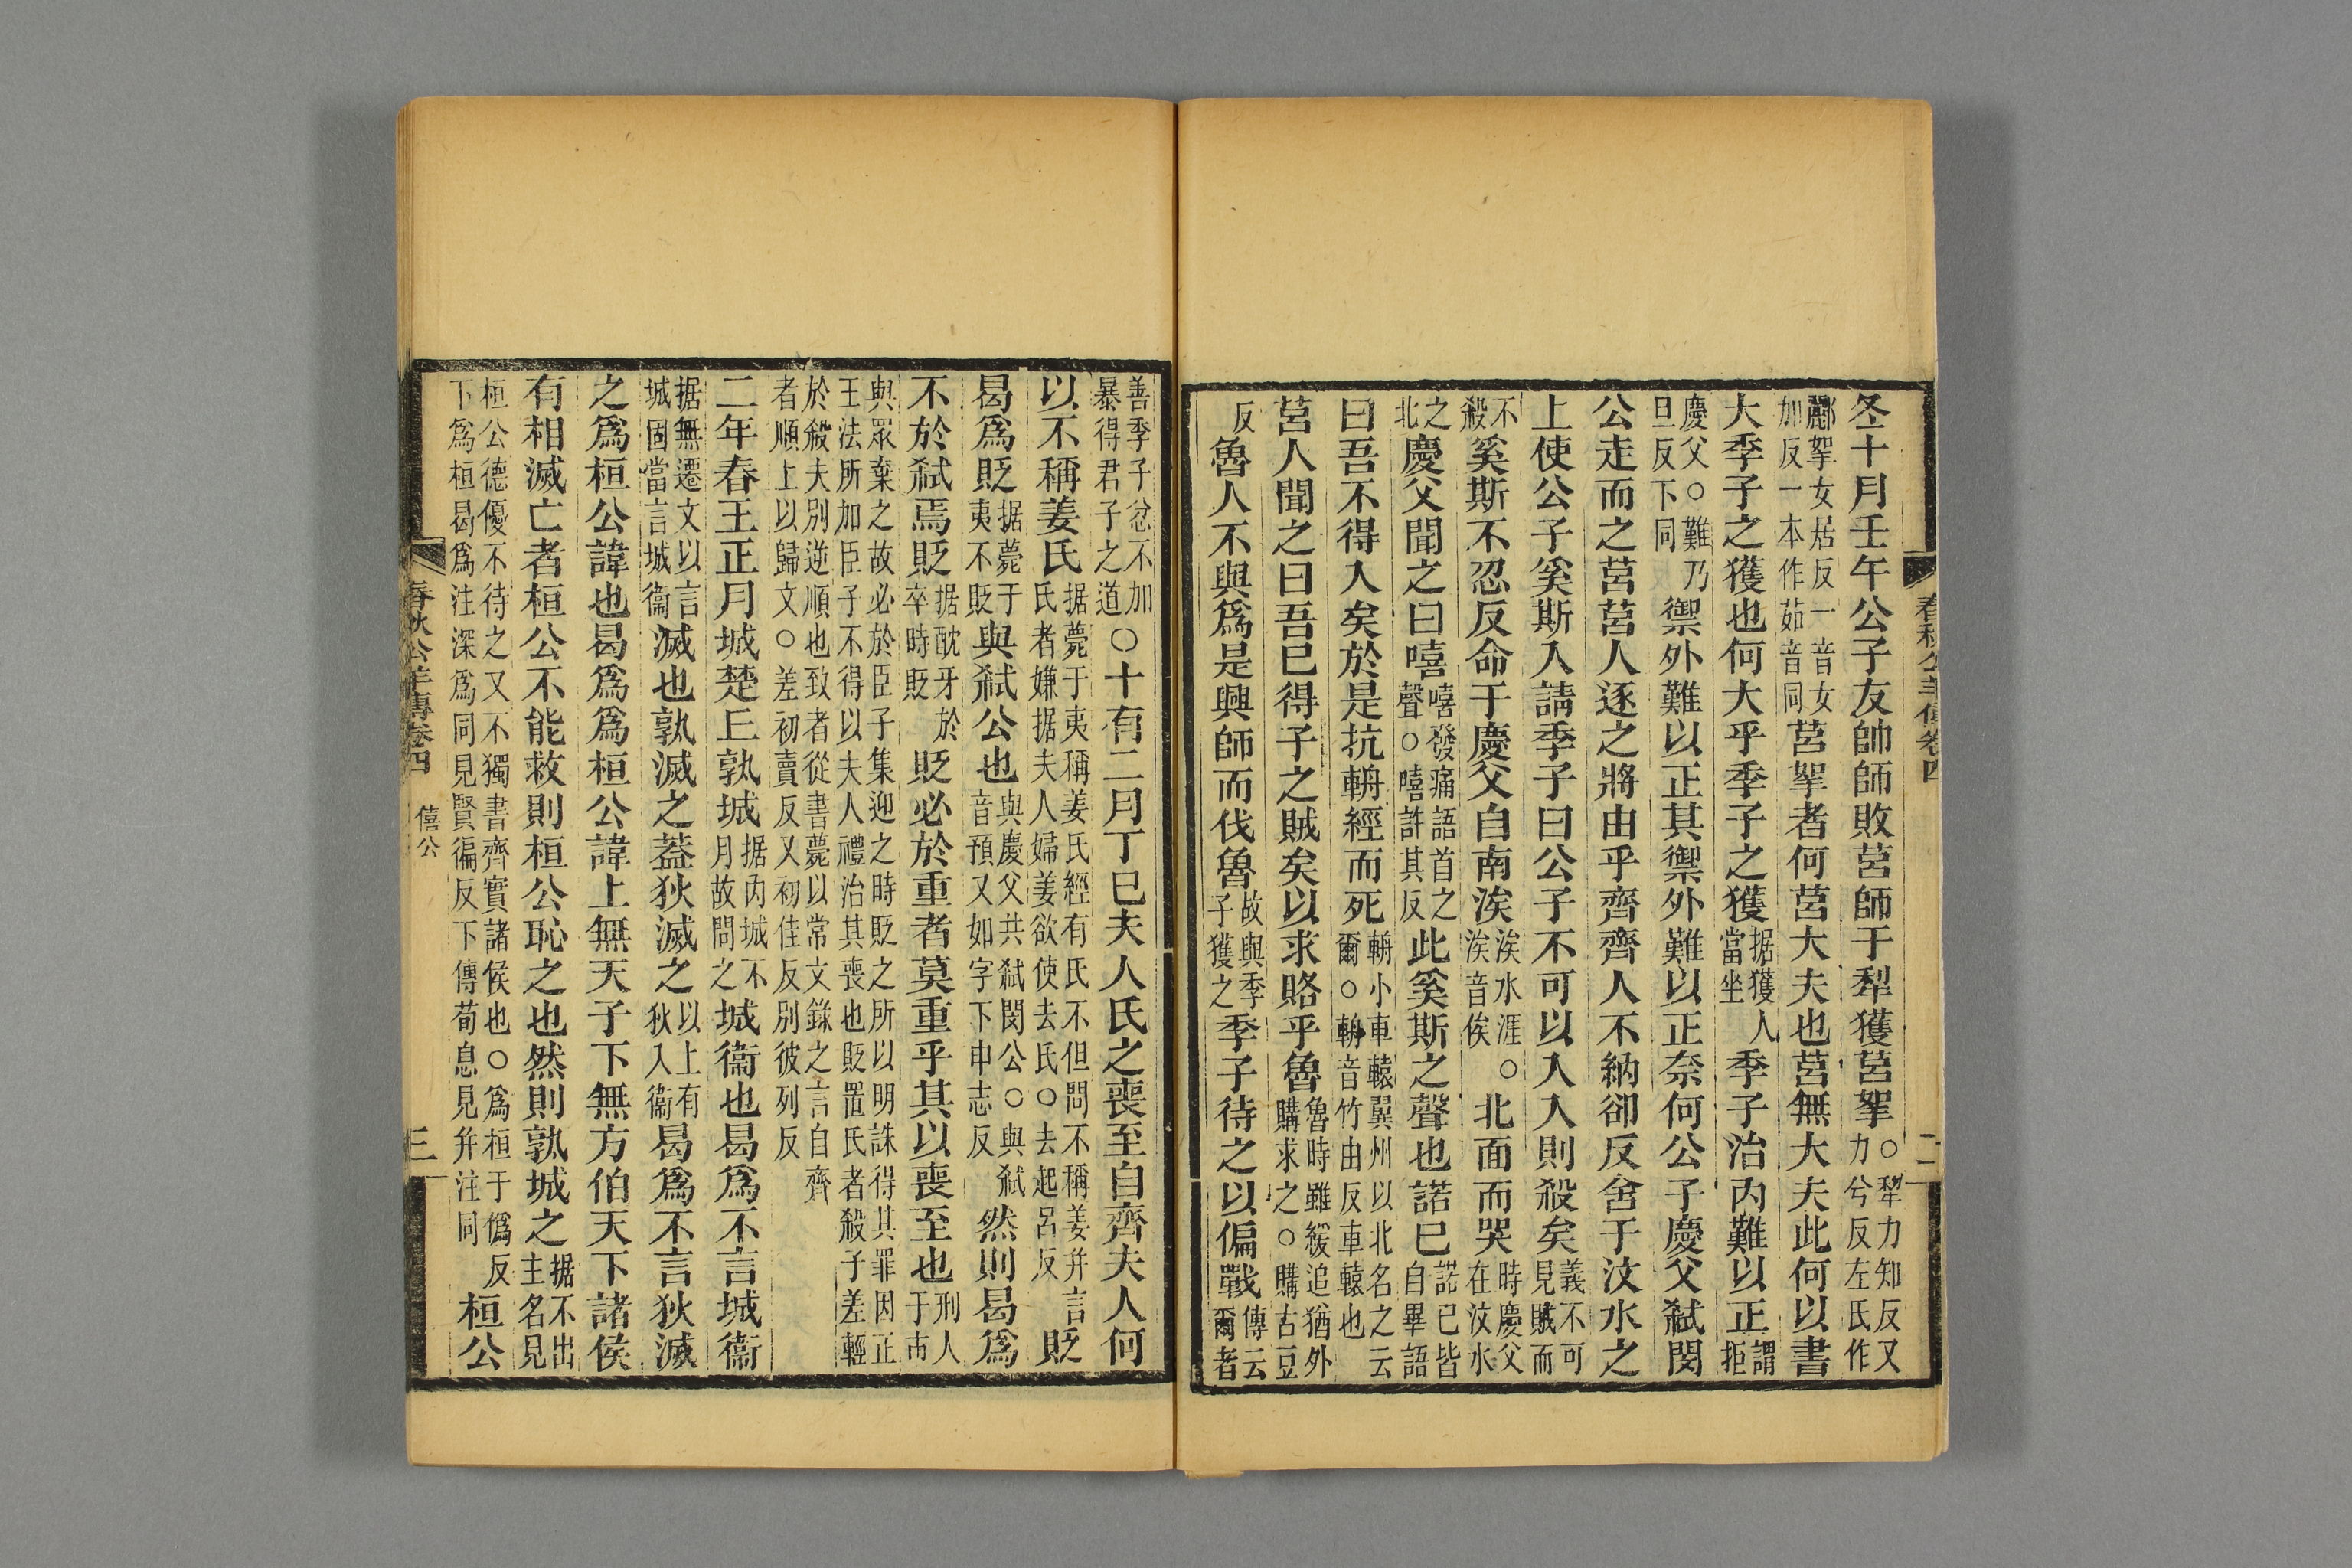 春秋公羊傳卷四 二
冬十月壬午公子友帥師敗莒師于犂獲莒挐○犂力知反又力兮反左氏作
酈挐女居反一音女加反一本作茹音同莒挐者何莒大夫也莒無大夫此何以書
大季子之獲也何大乎季子之獲据獲人當坐季子治內難以正謂拒
慶父○難乃旦反下同禦外難以正其禦外難以正奈何公子慶父弒閔
公走而之莒莒人逐之將由乎齊齊人不納卻反舍于汶水之
上使公子奚斯入請季子曰公子不可以入入則殺矣義不可見賊而
不殺奚斯不忍反命于慶父自南涘涘水涯○涘音俟北面而哭時慶父在汶水
之北慶父聞之曰嘻嘻發痛語首之聲○嘻許其反此奚斯之聲也諾已諾已皆自畢語
曰吾不得入矣於是抗輈經而死輈小車轅冀州以北名之云爾○輈音竹由反車轅也
莒人聞之曰吾已得子之賊矣以求賂乎魯魯時雖緩追猶外購求之○購古豆
反魯人不與爲是興師而伐魯故與季子獲之季子待之以偏戰傳云爾者
善季子忿不加暴得君子之道○十有二月丁巳夫人氏之喪至自齊夫人何
以不稱姜氏据薨于夷稱姜氏經有氏不但問不稱姜并言氏者嫌据夫人婦姜欲使去氏○去起呂反貶
曷爲貶据薨于夷不貶與弒公也與慶父共弒閔公○與弒音預又如字下申志反然則曷爲
不於弒焉貶据酖牙於卒時貶貶必於重者莫重乎其以喪至也刑人于市
與眾棄之故必於臣子集迎之時貶之所以明誅得其罪因正王法所加臣子不得以夫人禮治其喪也貶置氏者殺子差輕
於殺夫別逆順也致者從書薨以常文錄之言自齊者順上以歸文○差初賣反又初佳反別彼列反
二年春王正月城楚丘孰城据內城不月故問之城衞也曷爲不言城衞
据無遷文以言城固當言城衞滅也孰滅之蓋狄滅之以上有狄入衞曷爲不言狄滅
之爲桓公諱也曷爲爲桓公諱上無天子下無方伯天下諸侯
有相滅亡者桓公不能救則桓公恥之也然則孰城之据不出主名見
桓公德優不待之又不獨書齊實諸侯也○爲桓于僞反下爲桓曷爲注深爲同見賢徧反下傳荀息見并注同桓公
春秋公羊傳卷四 僖公 三